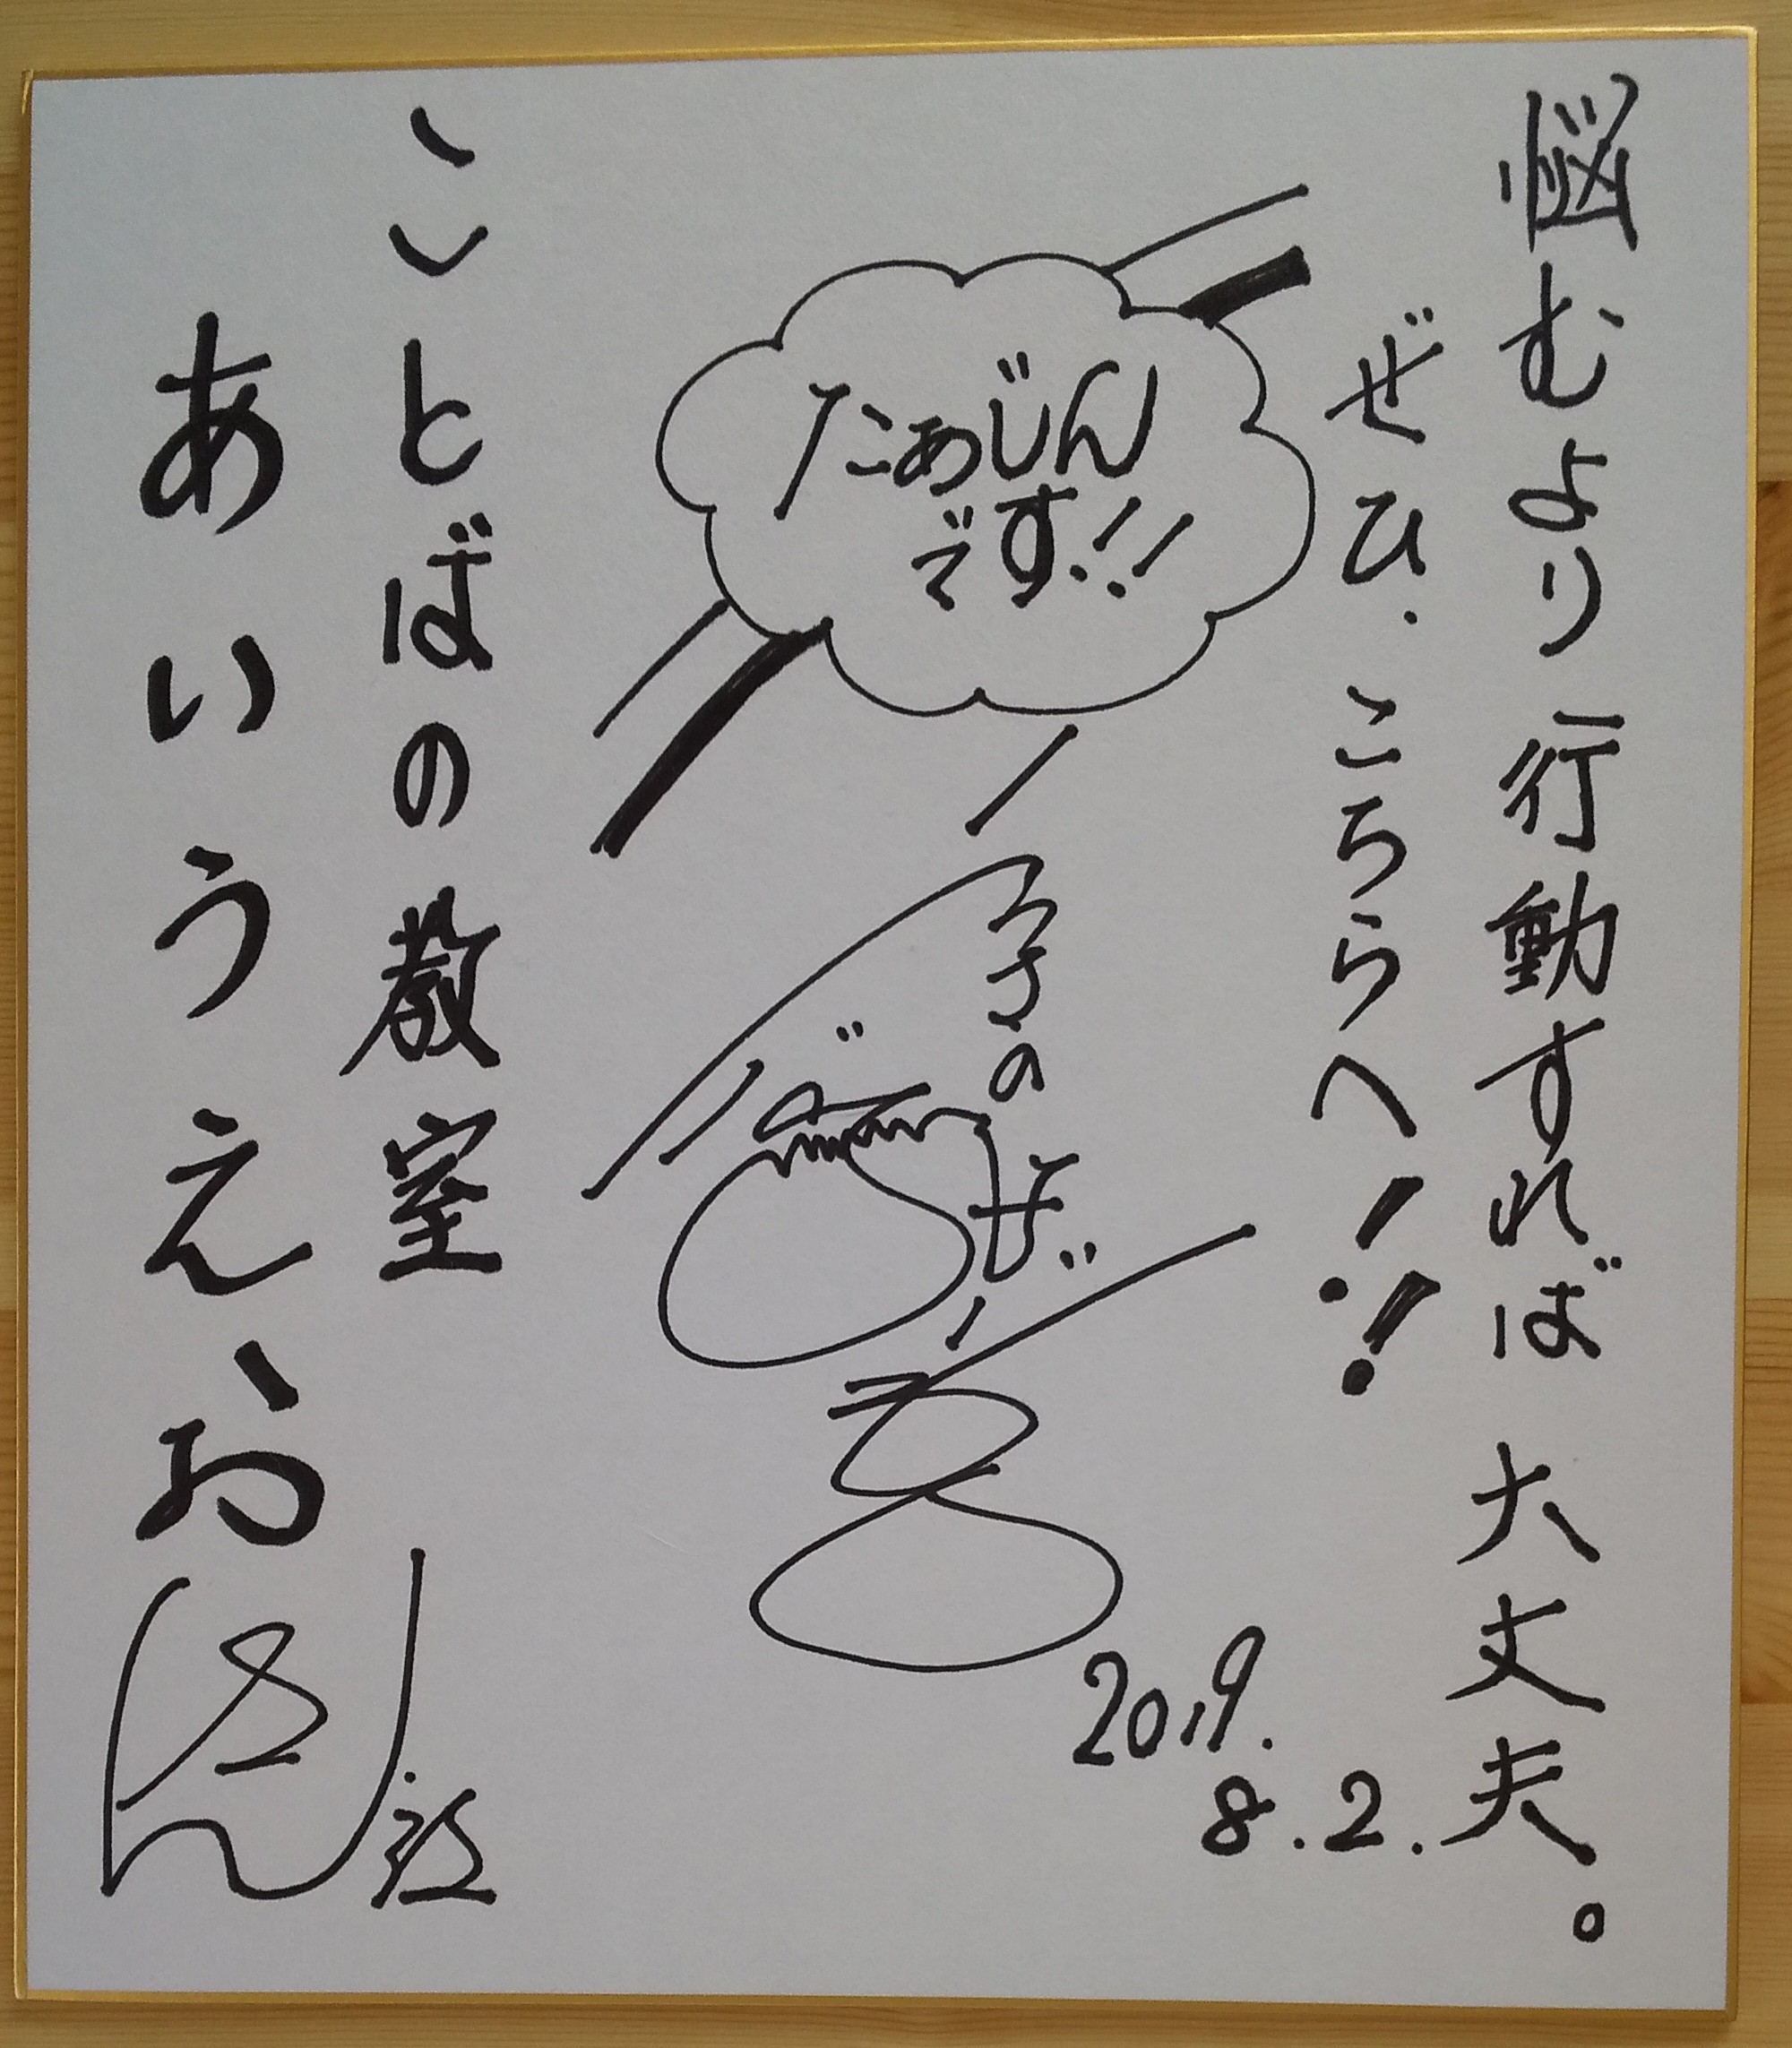 悩むより行動すれば大丈夫。
ぜひ、こちらへ!!
たあじん
です!!
2019.
8.2.
ことばの教室
あいうえお
さん江